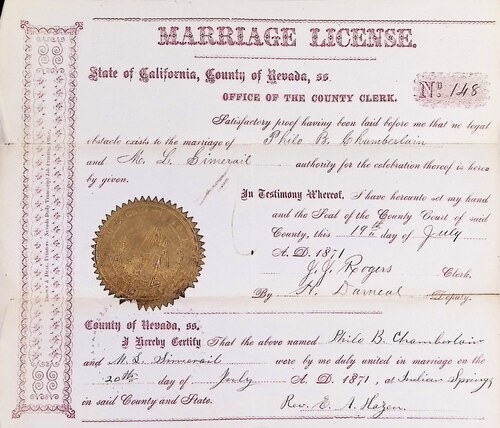 MARRIAGE LICENSE.
State of California, County of Nevada, ss.
OFFICE OF THE COUNTY CLERK.
No 148
Satisfactory proof having been laid before me that no legal
obstacle exists to the marriage of Philo B. Chamberlain
and M. L. Simerail authority for the celebration thereof is here
by given.
In Testimony Whereof, I have hereunto set my hand
and the Seal of the County Court of said
County, this 19th day of July
A. D. 1871
Rogers Clerk.
By H. Darneal Deputy.
County of Nevada, ss.
I Hereby Certify That the above named Philo B. Chamberlain
and M. L. Simerail were by me duly united in marriage on the
20th day of July A. D. 1871, at Indian Springs
in said County and State.
Rev. E. A. Hazen.